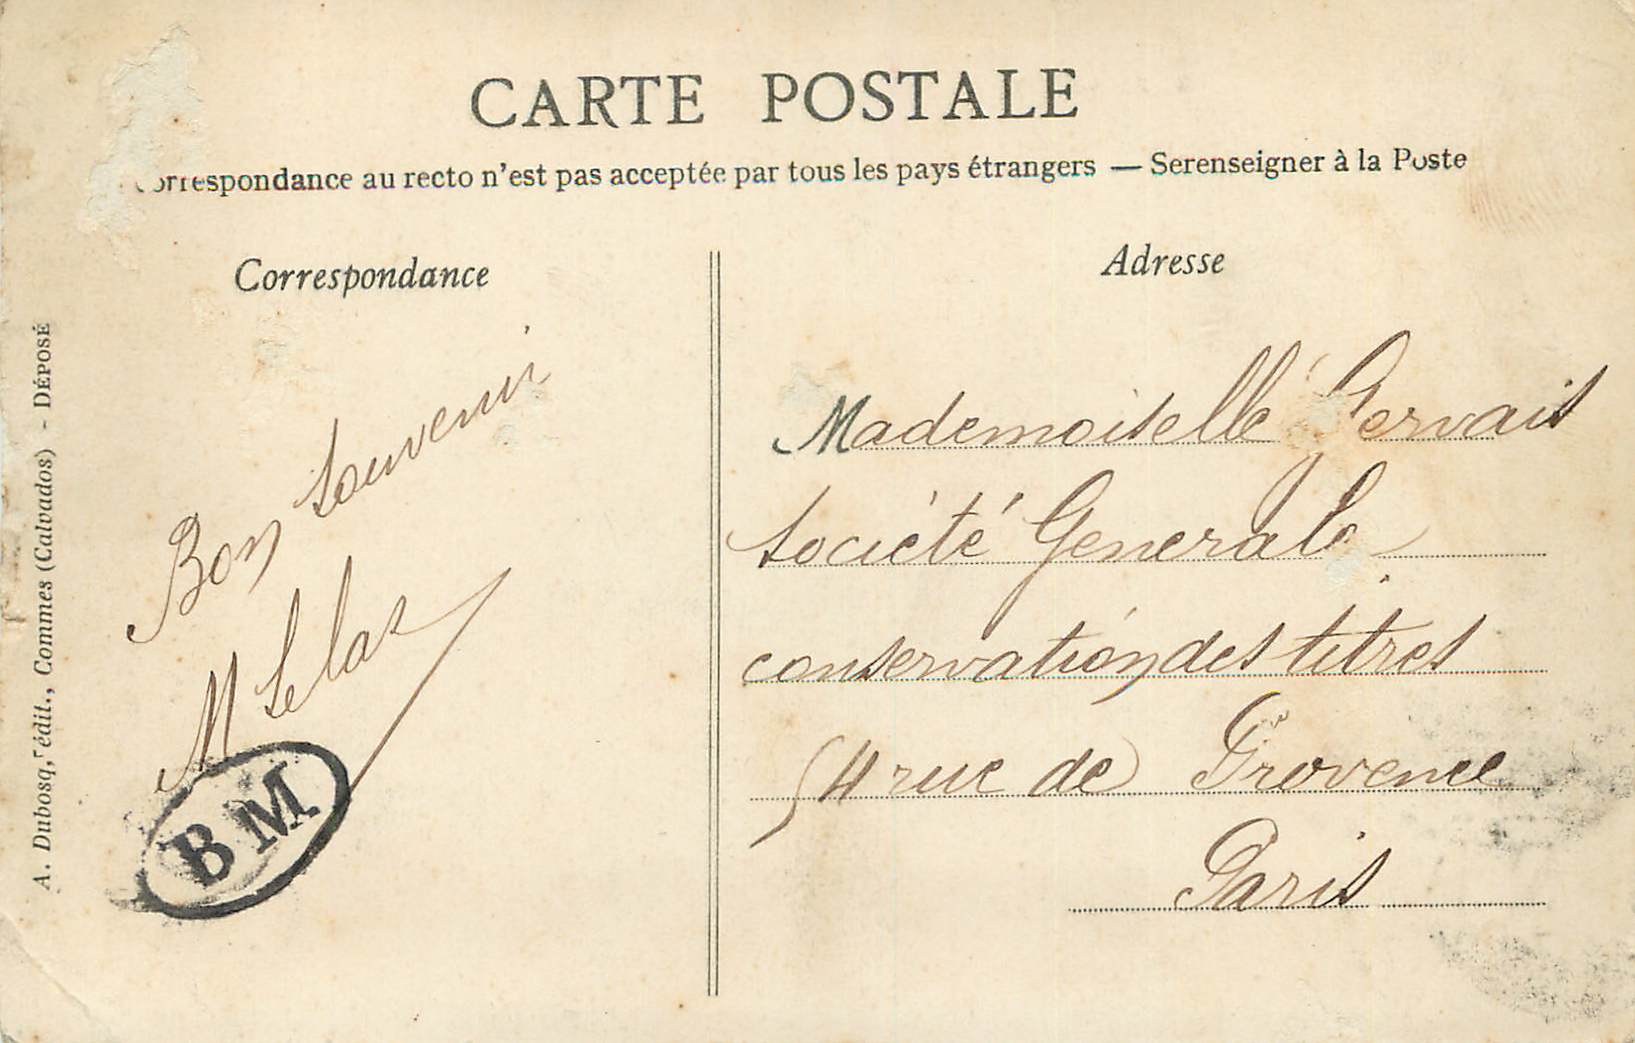 CARTE POSTALE
orrespondance au recto n'est pas acceptée par tous les pays étrangers — Serenseigner à la Poste
Correspondance
Bon souvenir
M Lelaz
BM
A. Dubosq, édit., Commes (Calvados) - DÉPOSÉ
Adresse
Mademoiselle Gervais
Société Generale
conservation des titres
54 rue de Provence
Paris